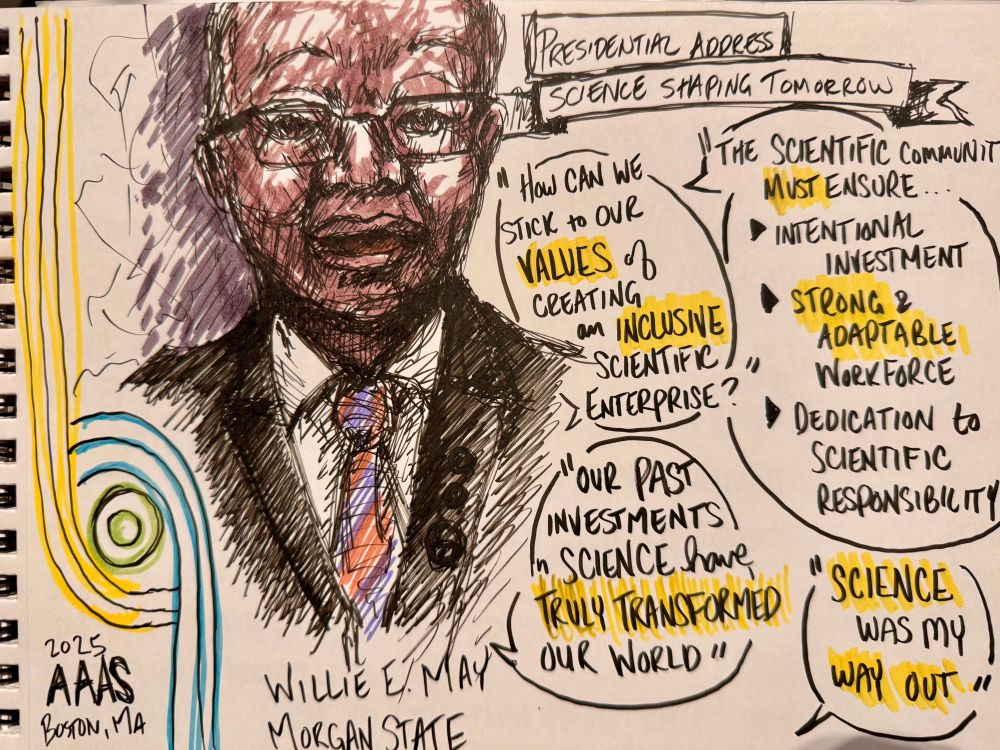 PRESIDENTIAL ADDRESS
SCIENCE SHAPING TOMORROW
"HOW CAN WE
STICK to OUR
VALUES of
CREATING
an INCLUSIVE
SCIENTIFIC
ENTERPRISE?"
"THE SCIENTIFIC COMMUNIT
MUST ENSURE...
INTENTIONAL
INVESTMENT
STRONG &
ADAPTABLE
WORKFORCE
DEDICATION to
SCIENTIFIC
RESPONSIBILITY
"OUR PAST
INVESTMENTS
in SCIENCE have
TRULY TRANSFORMED
OUR WORLD"
"SCIENCE
WAS MY
WAY OUT."
2025
AAAS
BOSTON, MA
WILLIE E. MAY
MORGAN STATE